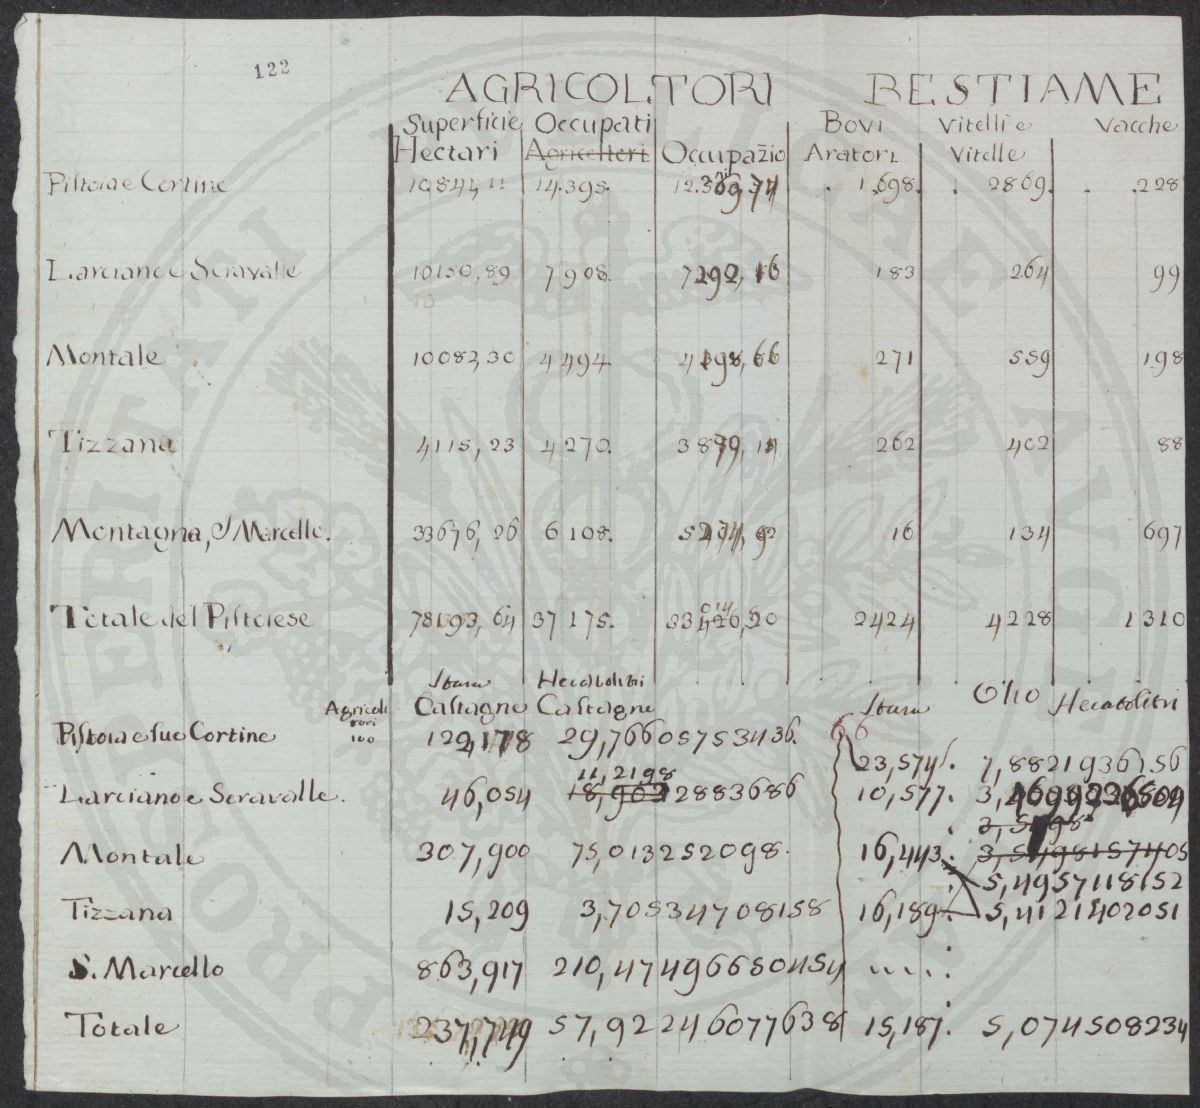 122
AGRICOLTORI BESTIAME
Superficie Occupati Bovi Vitelli e Vacche
Hectari Agricoltori Occupazio Aratori Vitelle
Pistoia e Cortine 10841,11 14.395. 1,698. 2869. 228
Larciano e Seravalle 10150,89 7908. 7292,16 183 264 99
Montale 10082,30 4494. 271 559 198
Tizzana 4115,23 4270. 262 402 88
Montagna, S Marcello. 33676,26 6108. 16 134 697
Totale del Pistoiese 78193,64 37175. 2424 4228 1310
Stara Hectolitri
Agricoltori 100 Castagne Castagne Stara Olio Hectolitri
Pistoia e sue Cortine 122,178 29,76605753436. 66
23,574. 7,8821936156
Larciano e Seravalle. 46,054 11,2198 2883686 10,577. 3,
Montale 307,900 75,013252098. 16,443. 3,5498157405
5,4957118152
Tizzana 15,209 3,70534708158 16,189. 5,4121402051
S. Marcello 863,917 210,47496650454
Totale 237,749 57,92246077638 15,187. 5,074508234